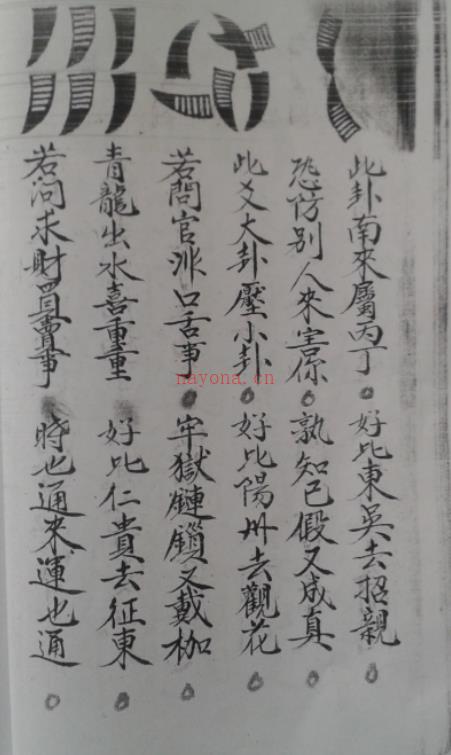 此卦南來屬丙丁。好比東吳去招親。
恐防別人來害你。孰知已假又成真。
此爻大卦壓小卦。好比陽州去觀花。
若問官非口舌事。牢獄鏈鎖又戴枷。
青龍出水喜重重。好比仁貴去征東。
若问求財買賣事。時也通來運也通。
nayona.cn